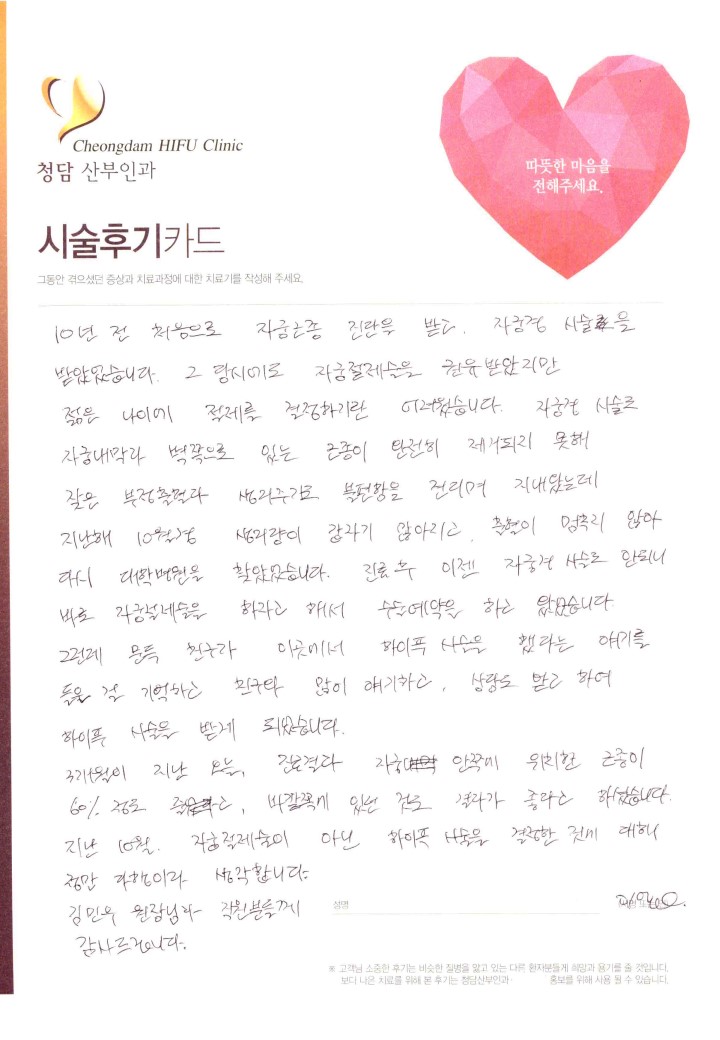 Cheongdam HIFU Clinic
청담 산부인과
따뜻한 마음을
전해주세요.
시술후기카드
그동안 겪으셨던 증상과 치료과정에 대한 치료기를 작성해 주세요.
10년 전 처음으로 자궁근종 진단을 받고, 자궁경 시술을
받았었습니다. 그 당시에도 자궁절제술을 권유받았지만
젊은 나이에 절제를 결정하기란 어려웠습니다. 자궁경 시술로
자궁내막과 벽쪽으로 있는 근종이 완전히 제거되지 못해
잦은 부정출혈과 생리주기로 불편함을 견디며 지내왔는데
지난해 10월경 생리량이 갑자기 많아지고, 출혈이 멈추지 않아
다시 대학병원을 찾았었습니다. 진료 후 이젠 자궁경 시술로 안되니
바로 자궁절제술을 하자고 해서 수술예약을 하고 왔었습니다.
그런데 문득 친구가 이곳에서 하이푸 시술을 했다는 얘기를
들은 걸 기억하고 친구와 많이 얘기하고, 상담도 받고 하여
하이푸 시술을 받게 되었습니다.
3개월이 지난 오늘, 진료결과 자궁 안쪽에 위치한 근종이
60% 정도 줄었고, 바깥쪽에 있던 것도 결과가 좋다고 하셨습니다.
지난 10월, 자궁절제술이 아닌 하이푸 시술을 결정한 것에 대해
정말 다행이라 생각합니다.
김민우 원장님과 직원분들께
감사드립니다.
성명
※ 고객님 소중한 후기는 비슷한 질병을 앓고 있는 다른 환자분들게 희망과 용기를 줄 것입니다.
보다 나은 치료를 위해 본 후기는 청담산부인과· 홍보를 위해 사용 될 수 있습니다.